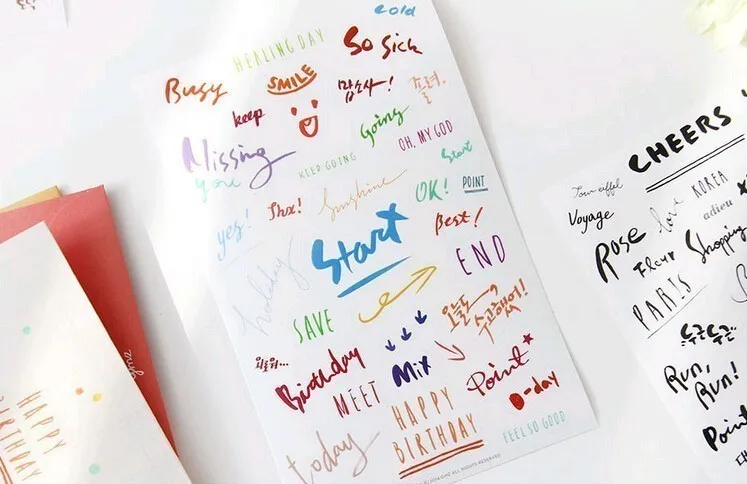 cold
HEALING DAY
So Sick
Busy
SMILE
keep
맙소사!
졸려.
Going
OH, MY GOD
Missing
you
KEEP GOING
Start
yes!
Thx!
Sunshine
OK!
POINT
Start
Best!
END
holiday
SAVE
오늘도
수고했어!
Birthday
MEET
Mix
Point
D-day
HAPPY
BIRTHDAY
FEEL SO GOOD
today
ALL RIGHTS RESERVED
CHEERS
Tour eiffel
Voyage
Rose
love
KOREA
adieu
Fleur
Shopping
PARIS
두근두근
Run,
Run!
Point
HAPPY
BIRTHDAY